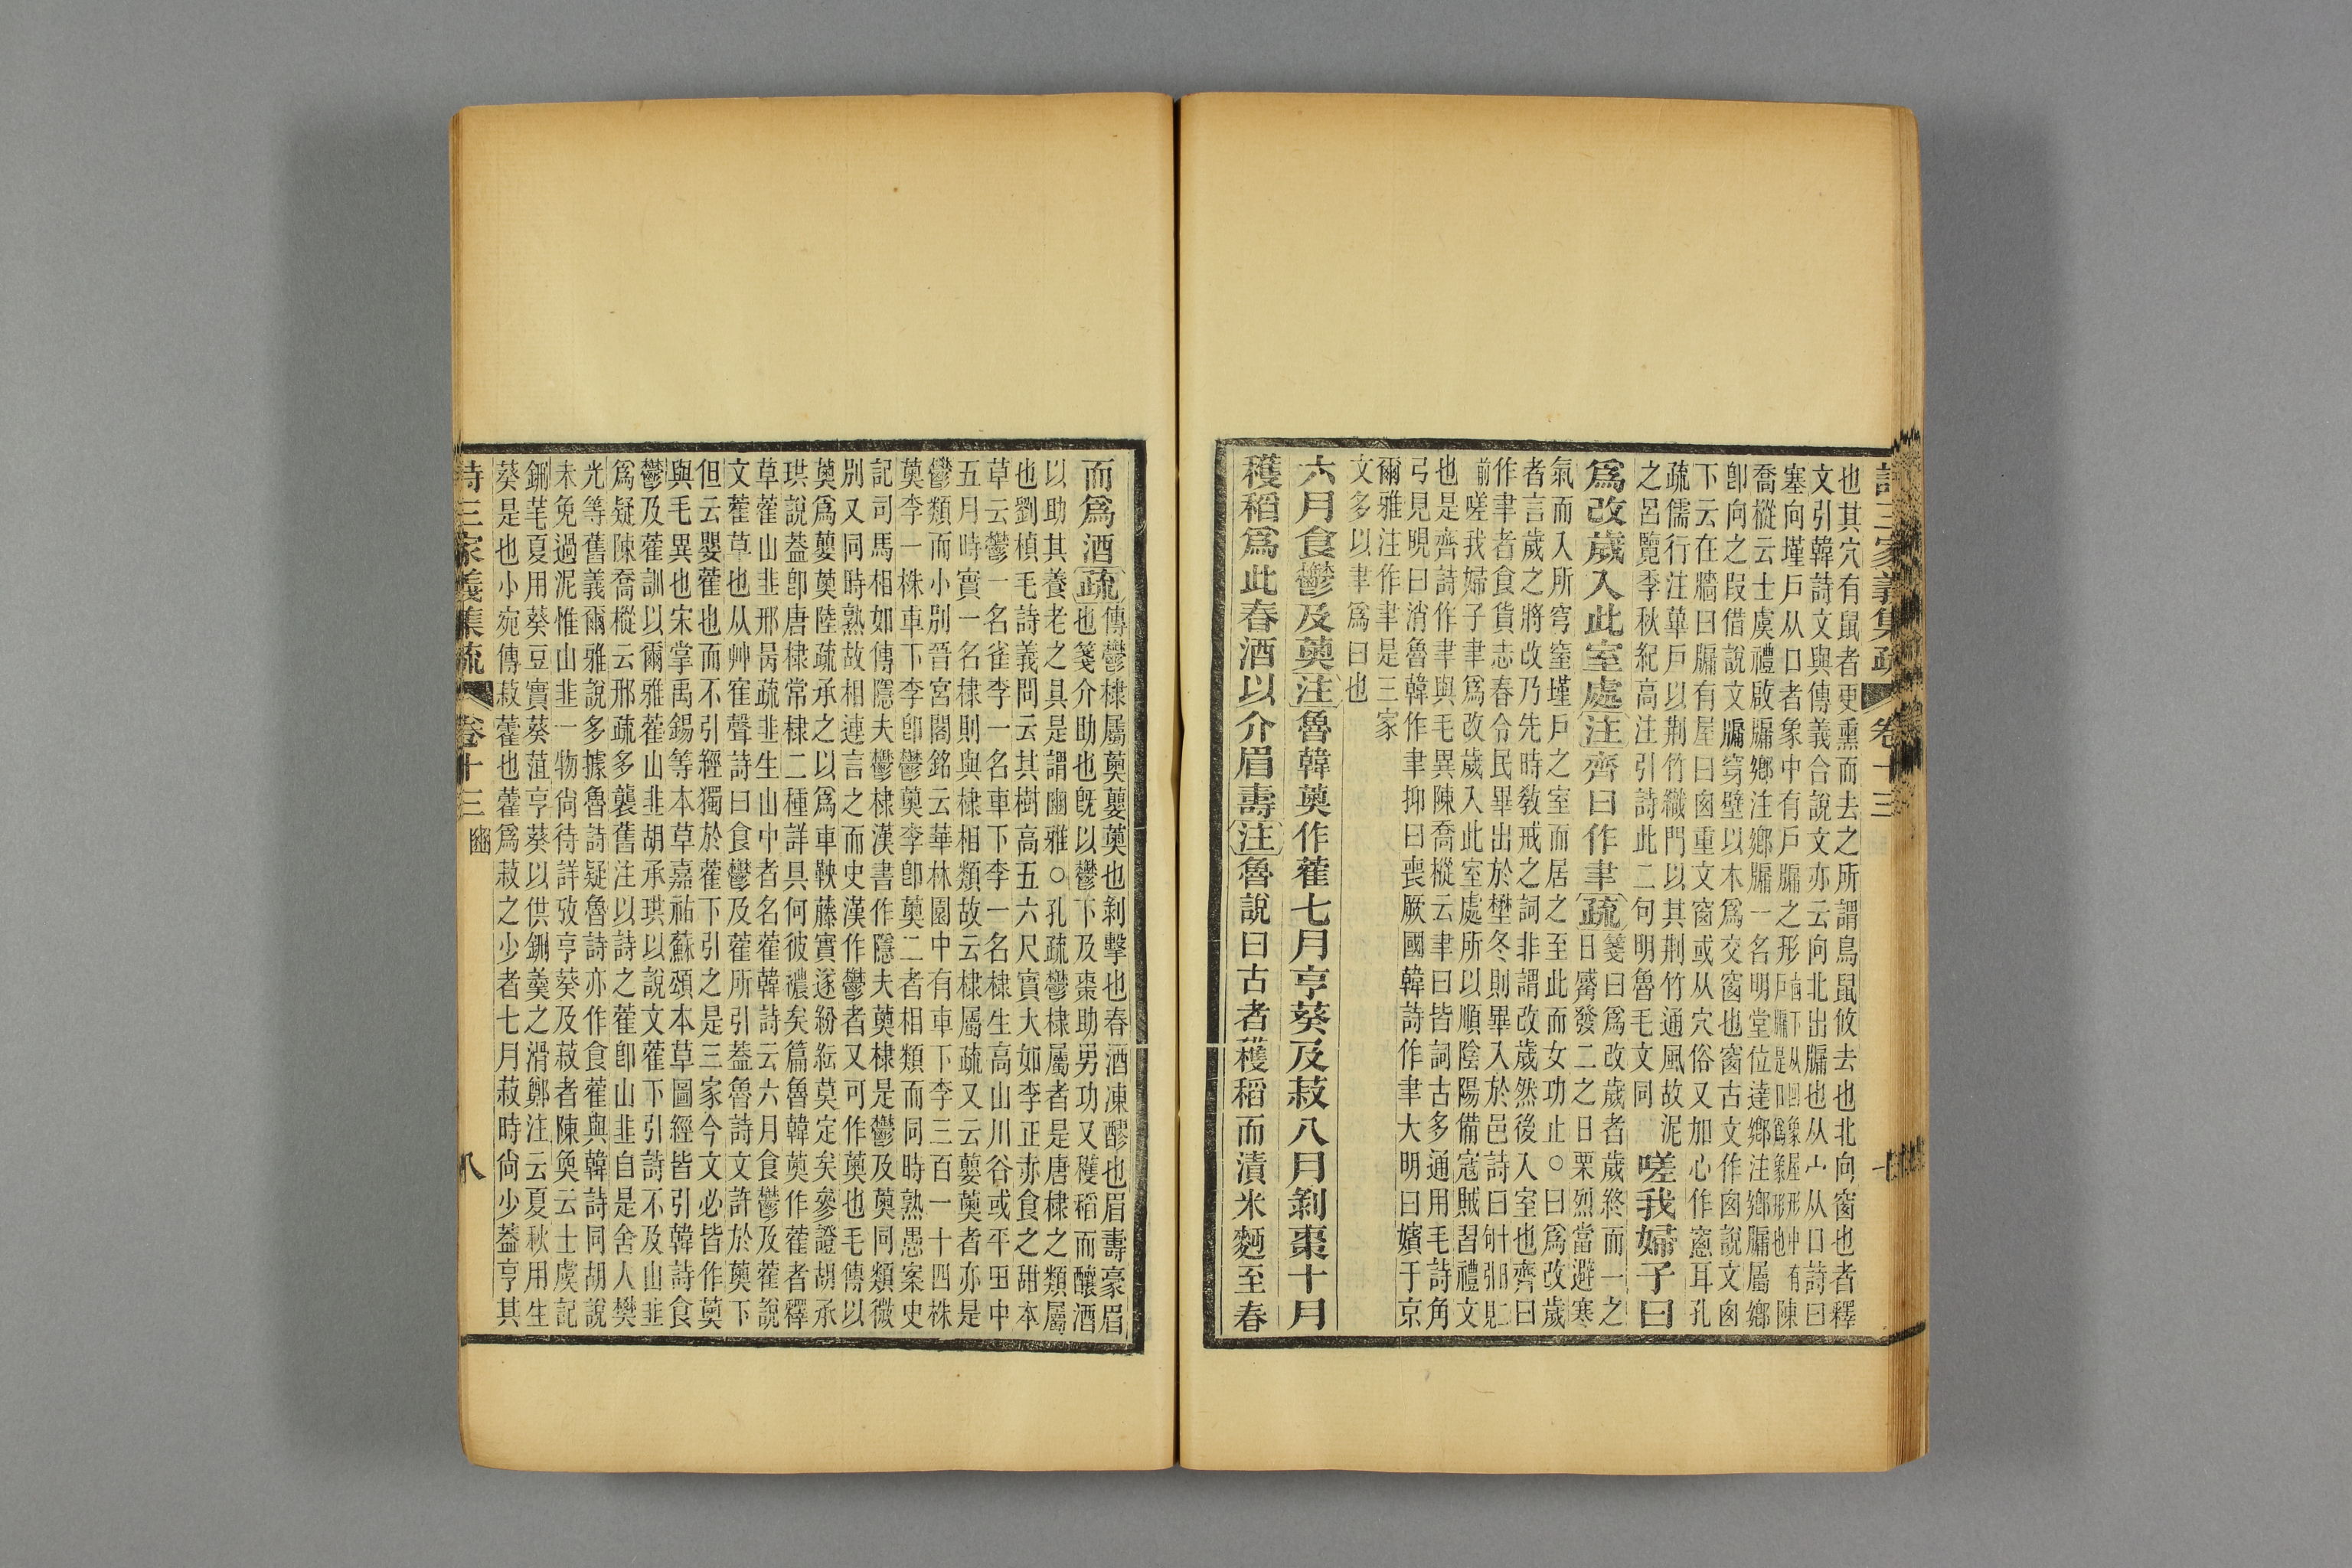 詩三家義集疏 卷十三
也其穴有鼠者更熏而去之所謂鳥鼠攸去也北向窗也者釋
文引韓詩文與傳義合說文亦云向北出牖也从宀从口詩曰
塞向墐戶从口者象中有戶牖之形
喬樅云士虞禮啟牖鄉注鄉牖一名明堂位達鄉注鄉牖屬鄉
卽向之叚借說文牖穿壁以木爲交窗也窗古文作囪說文囪
下云在牆曰牖有屋曰囪重文窗或从穴俗又加心作窻耳孔
疏儒行注蓽戶以荆竹織門以其荆竹通風故泥
之呂覽季秋紀高注引詩此二句明魯毛文同
嗟我婦子曰
爲改歲入此室處注齊曰作聿疏箋曰爲改歲者歲終而一之
日觱發二之日栗烈當避寒
氣而入所穹窒墐戶之室而居之至此而女功止○曰爲改歲
者言歲之將改乃先時敎戒之詞非謂改歲然後入室也齊曰
作聿者食貨志春令民畢出於壄冬則畢入於邑詩曰
前嗟我婦子聿爲改歲入此室處所以順陰陽備寇賊習禮文
也是齊詩作聿與毛異陳喬樅云聿曰皆詞古多通用毛詩角
弓見睍曰消魯韓作聿抑曰喪厥國韓詩作聿大明曰嬪于京
爾雅注作聿是三家
文多以聿爲曰也
六月食鬱及薁注魯韓薁作蒮七月亨葵及菽八月剝棗十月
穫稻爲此春酒以介眉壽注魯說曰古者穫稻而漬米麴至春
而爲酒疏傳鬱棣屬薁蘡薁也剝擊也春酒凍醪也眉壽豪眉
也箋介助也旣以鬱下及棗助男功又穫稻而釀酒
以助其養老之具是謂豳雅○孔疏鬱棣屬者是唐棣之類屬
也劉楨毛詩義問云其樹高五六尺實大如李正赤食之甜本
草云鬱一名雀李一名車下李一名棣生高山川谷或平田中
五月時實一名棣則與棣相類故云棣屬疏又云蘡薁者亦是
鬱類而小別晉宮閣銘云華林園中有車下李三百一十四株
薁李一株車下李卽鬱薁李卽薁二者相類而同時熟愚案史
記司馬相如傳隱夫鬱棣漢書作隱夫薁棣是鬱及薁同類微
別又同時熟故相連言之而史漢作鬱者又可作薁也毛傳以
薁爲蘡薁陸疏承之以爲車鞅藤實遂紛紜莫定矣參證胡承
珙說葢卽唐棣常棣二種詳具何彼襛矣篇魯韓薁作蒮者釋
草蒮山韭邢昺疏韭生山中者名蒮韓詩云六月食鬱及蒮說
文蒮草也从艸隺聲詩曰食鬱及蒮所引葢魯詩文許於薁下
但云嬰蒮也而不引經獨於蒮下引之是三家今文必皆作蒮
與毛異也宋掌禹錫等本草嘉祐蘇頌本草圖經皆引韓詩食
鬱及蒮訓以爾雅蒮山韭胡承珙以說文蒮下引詩不及山韭
爲疑陳喬樅云邢疏多襲舊注以詩之蒮卽山韭自是舍人樊
光等舊義爾雅說多據魯詩疑魯詩亦作食蒮與韓詩同胡說
未免過泥惟山韭一物尙待詳攷亨葵及菽者陳奐云士虞記
鉶芼夏用葵豆實葵菹亨葵以供鉶羹之滑鄭注云夏秋用生
葵是也小宛傳菽藿也藿爲菽之少者七月菽時尙少葢亨其
詩三家義集疏 卷十三 豳 八